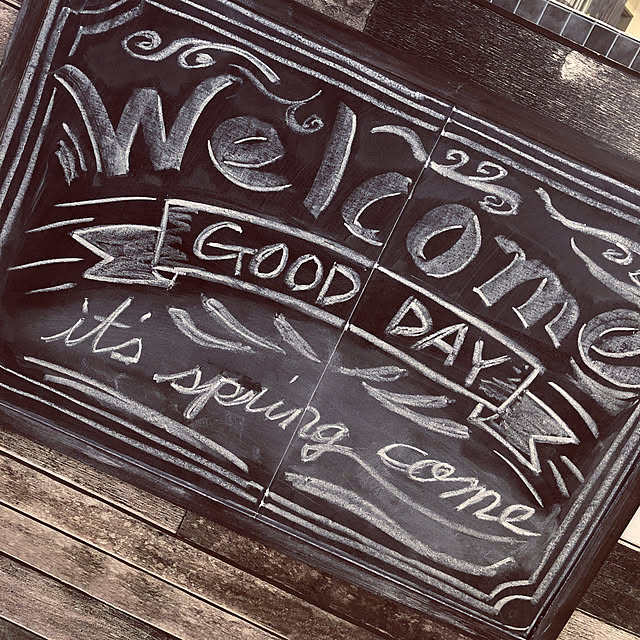 Welcome
GOOD DAY!
it's spring come